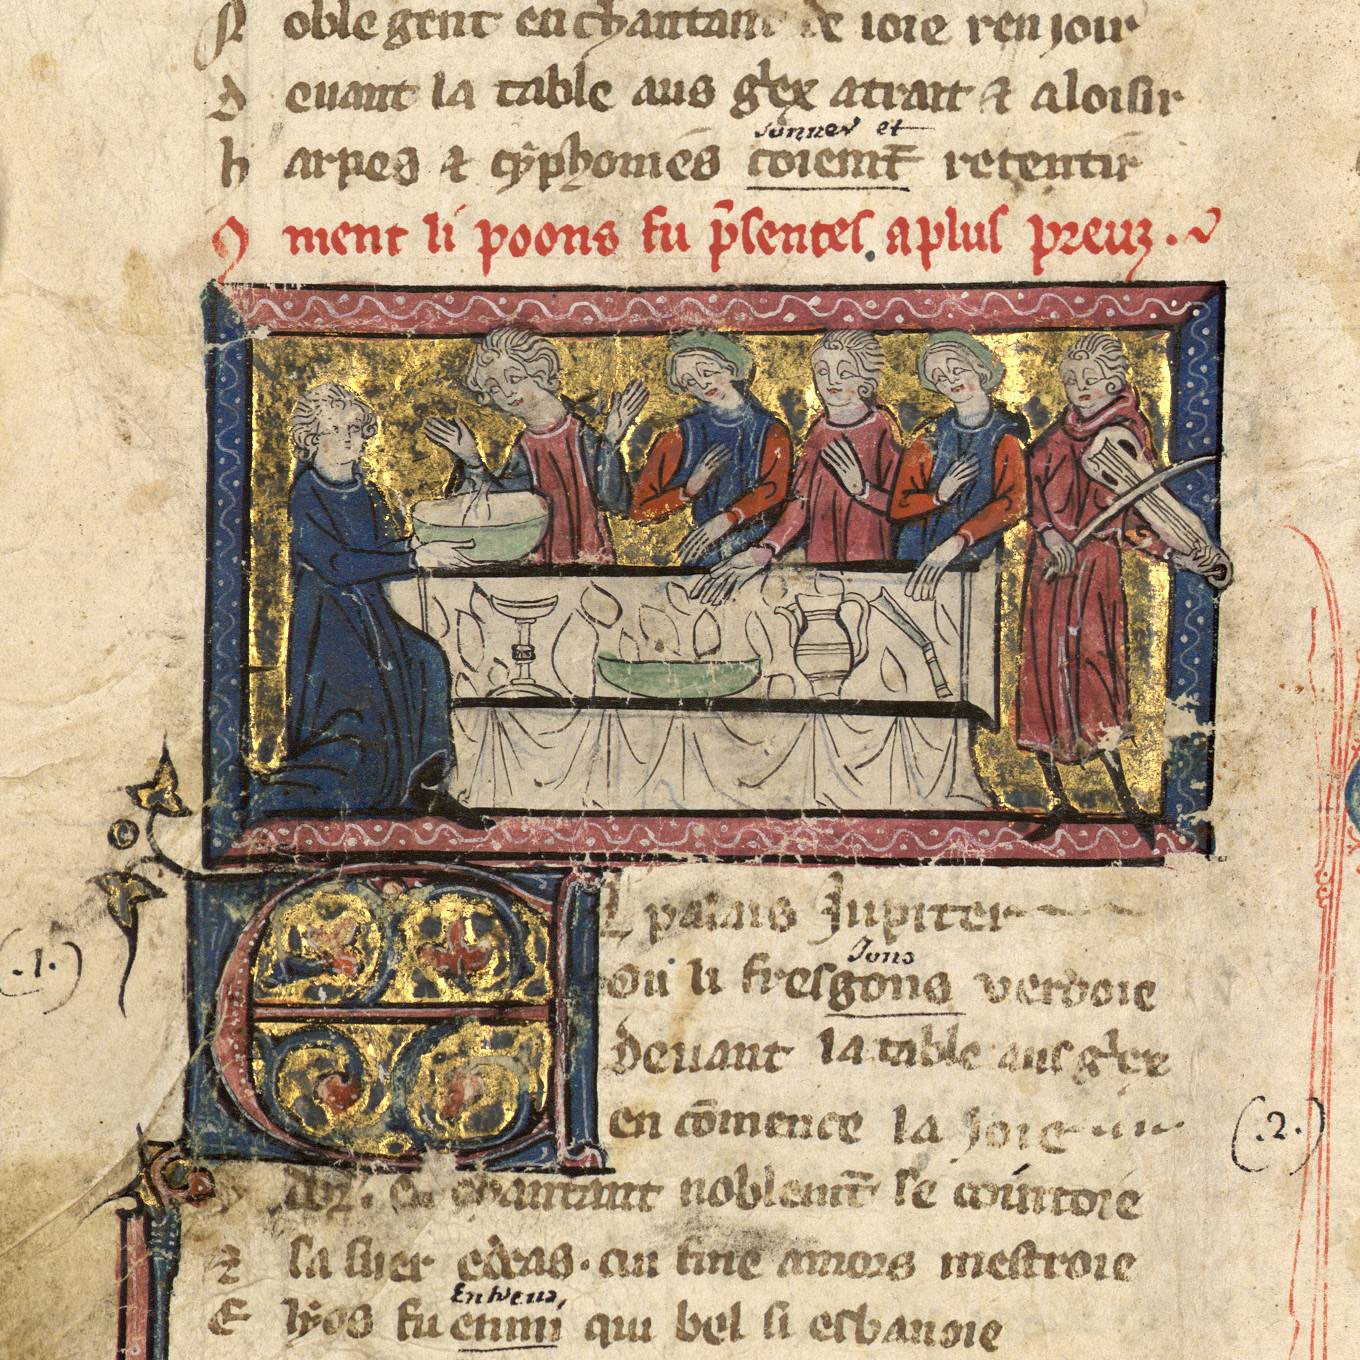 N oble gent en chantant de ioie ren ioir
d euant la table aus grex atrait & a loisir
sonner et
h arpes & cyphonies coiemt retentir
Coment li poons fu psentes. a plus preuz.
El palais Jupiter
Jons
ou li fresgons verdoie
deuant la table aus grex
en comence la ioie
.1.
.2.
chantant noblemt se cointoie
& sa suer edeas. cui fine amors mestroie
Enwens,
E lyos fu enmi qui bel si esbanoie